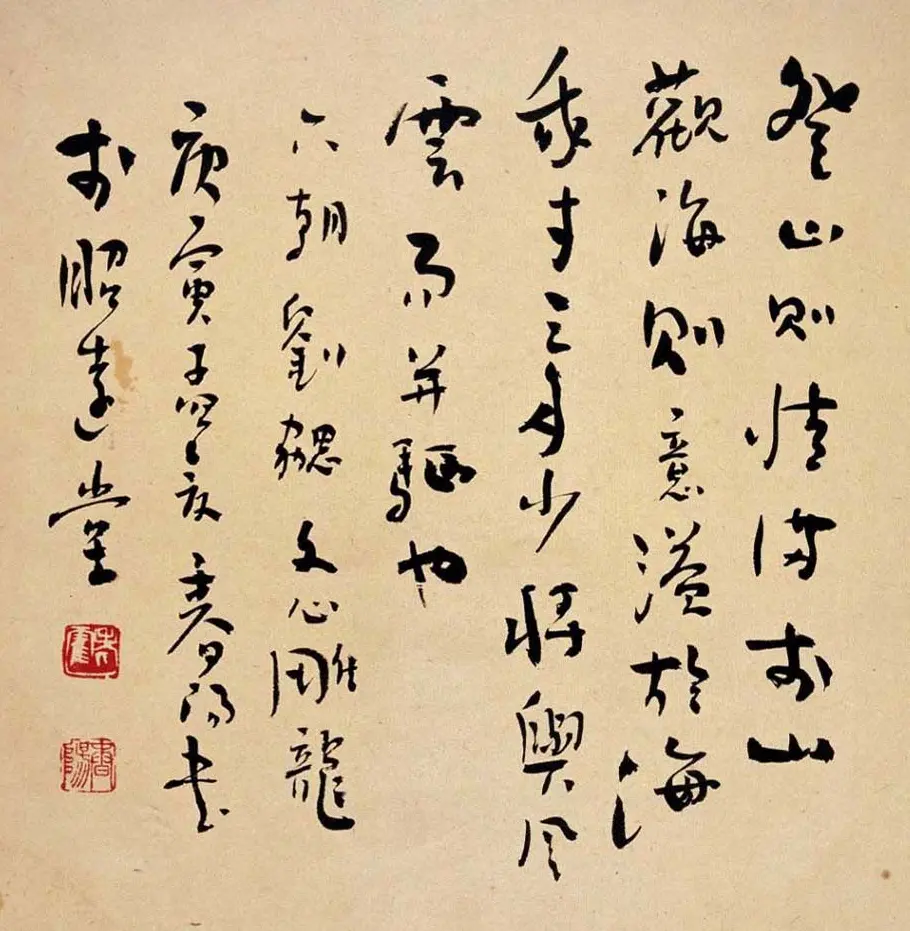 登山則情滿於山
觀海則意溢於海
我才之多少將與風
雲而并驅也
六朝劉勰文心雕龍
庚寅孟夏春陽書
於昭堂